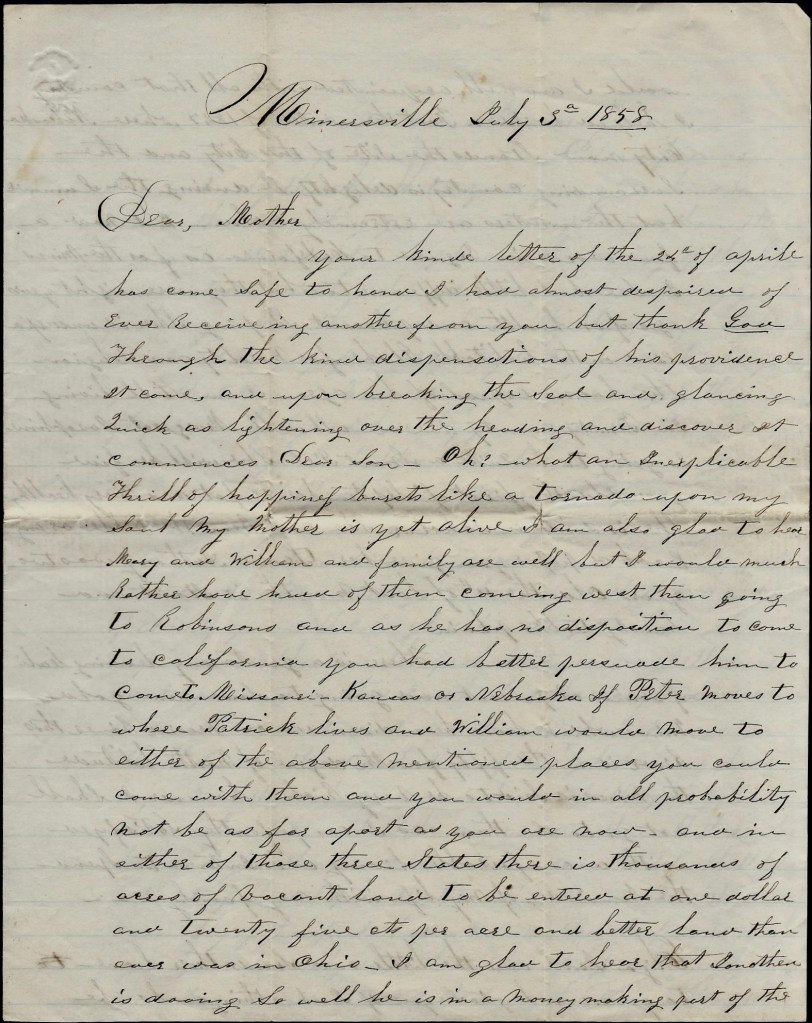 Minersville July 3d 1858
Dear, Mother
your kinde letter of the 24th of aprile
has come Safe to hand I had almost despaired of
Ever Receiveing another from you but thank God
Through the kind dispensations of his providence
It come, and upon breaking the Seal and glancing
Quick as lightening over the heading and discover it
commences Dear Son - Oh? what an Inexplicable
Thrill of happiness bursts like a tornado upon my
Soul My Mother is yet alive I am also glad to hear
Mary and William and family are well but I would much
Rather have heard of them comeing west than going
to Robinsons and as he has no disposition to come
to California you had better persuade him to
Come to Missouri - Kansas or Nebraska If Peter Moves to
where Patrick lives and William would move to
either of the above mentioned places you could
come with them and you would in all probability
not be as far apart as you are now - and in
either of those three States there is thousands of
acres of vacant land to be entered at one dollar
and twenty five cts per acre and better land than
ever was in Ohio - I am glad to hear that Jonathen
is dooing So well he is in a money making part of the